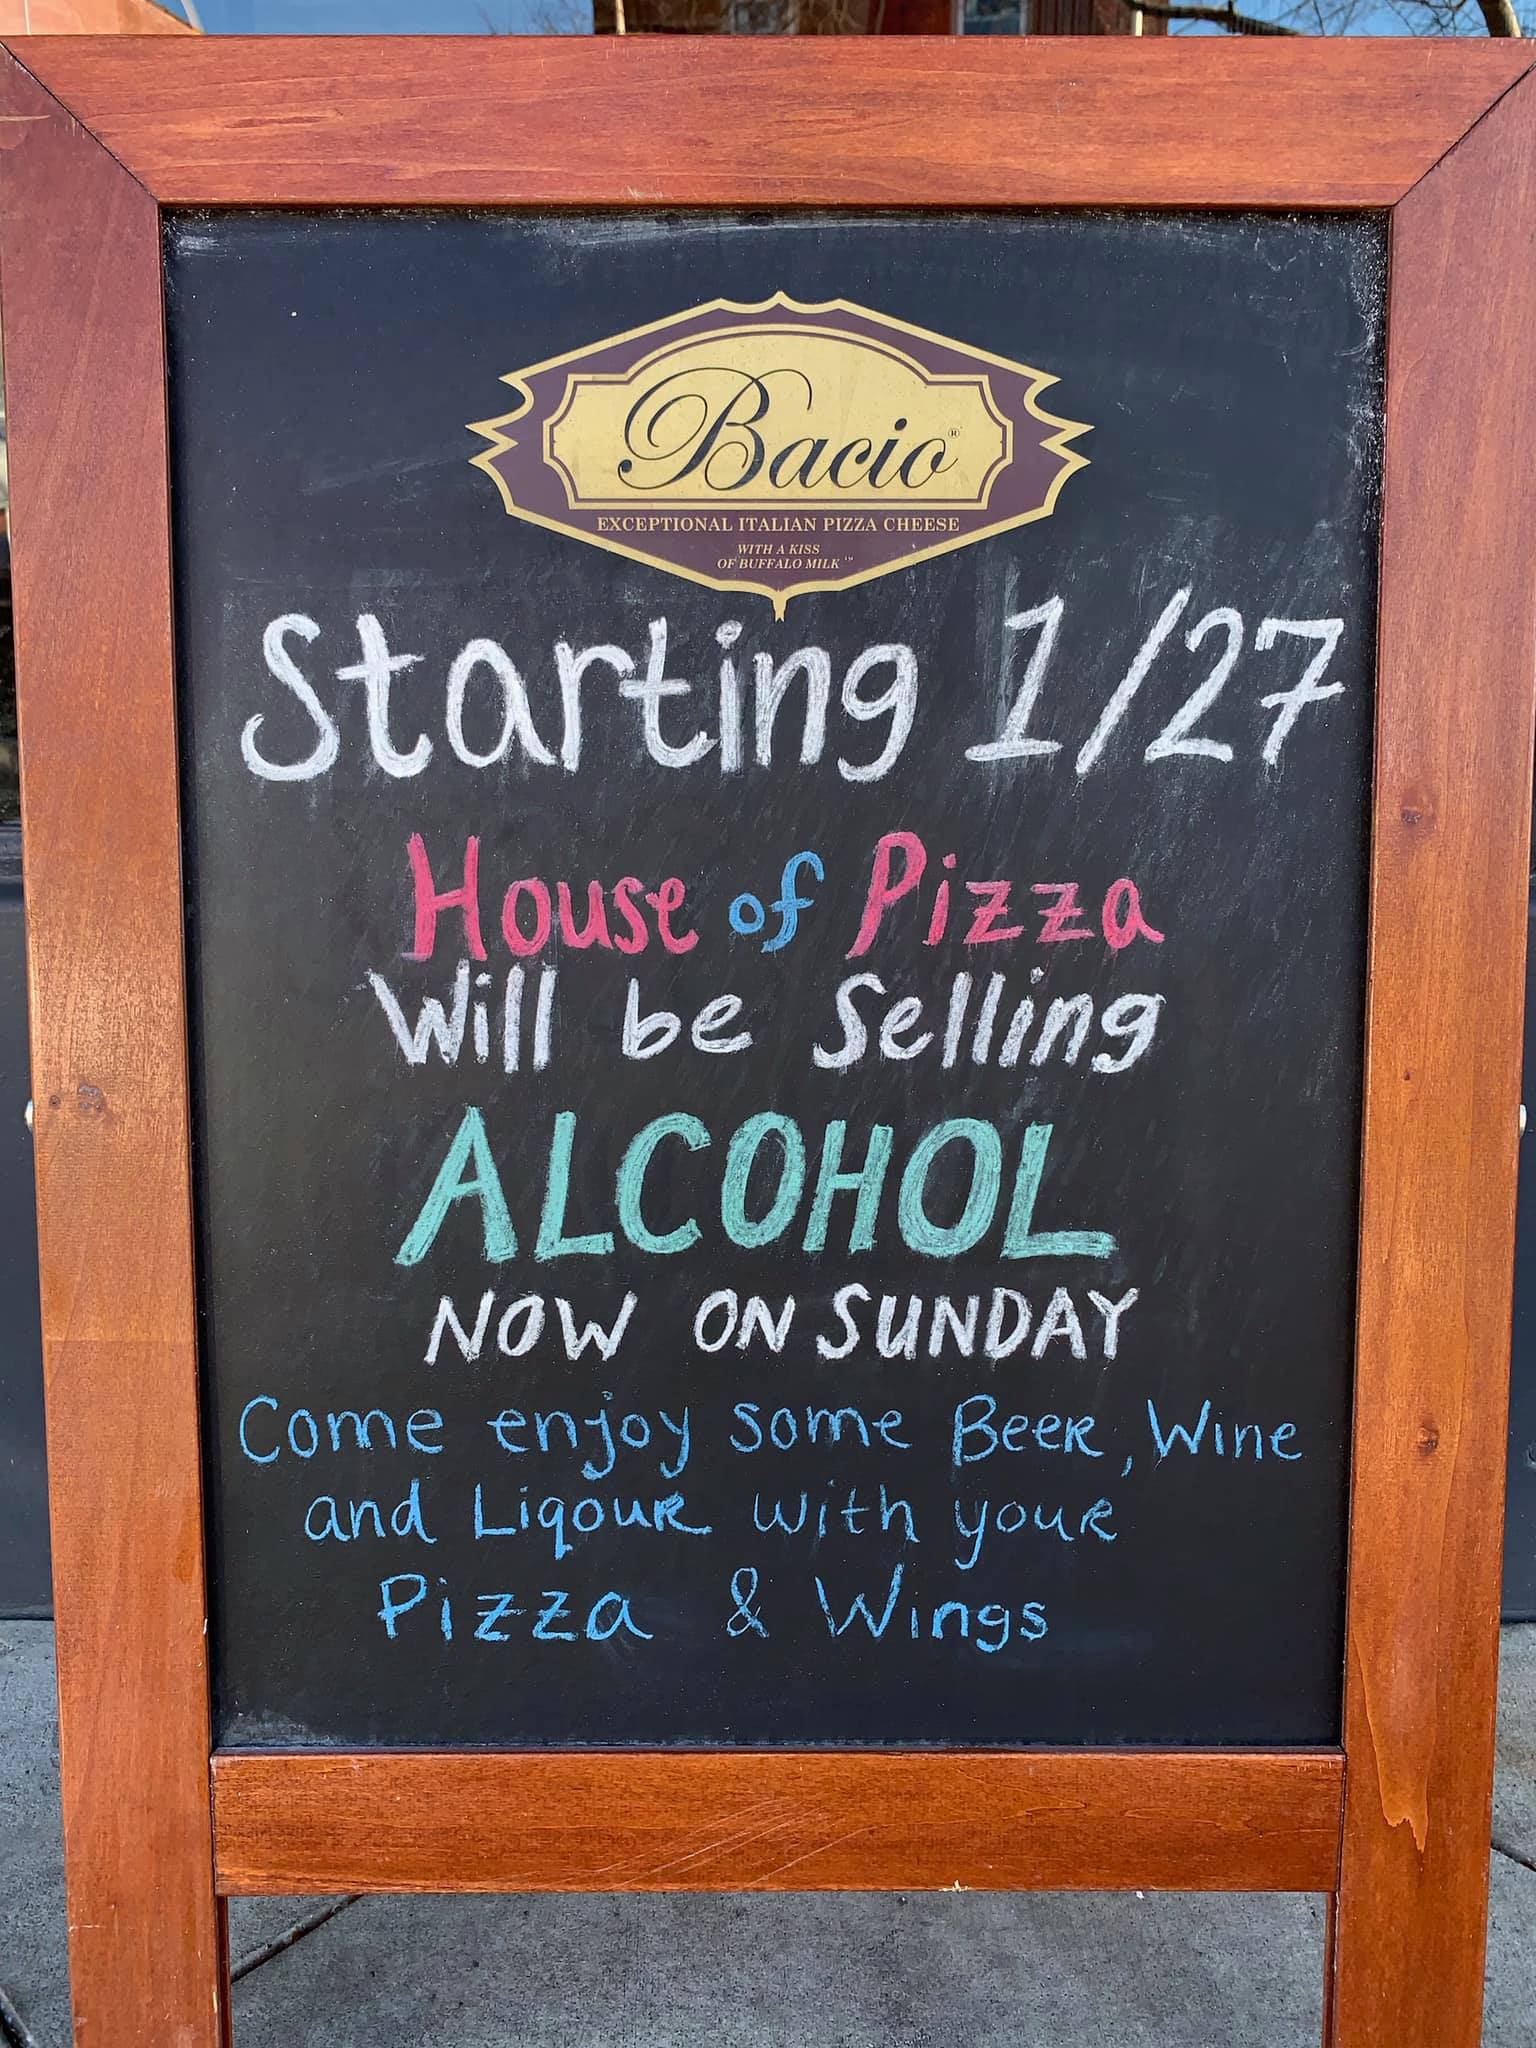 Bacio®
EXCEPTIONAL ITALIAN PIZZA CHEESE
WITH A KISS
OF BUFFALO MILK ™
Starting 1/27
House of Pizza
Will be Selling
ALCOHOL
NOW ON SUNDAY
Come enjoy some BeeR, Wine
and LiqouR with youR
Pizza & Wings